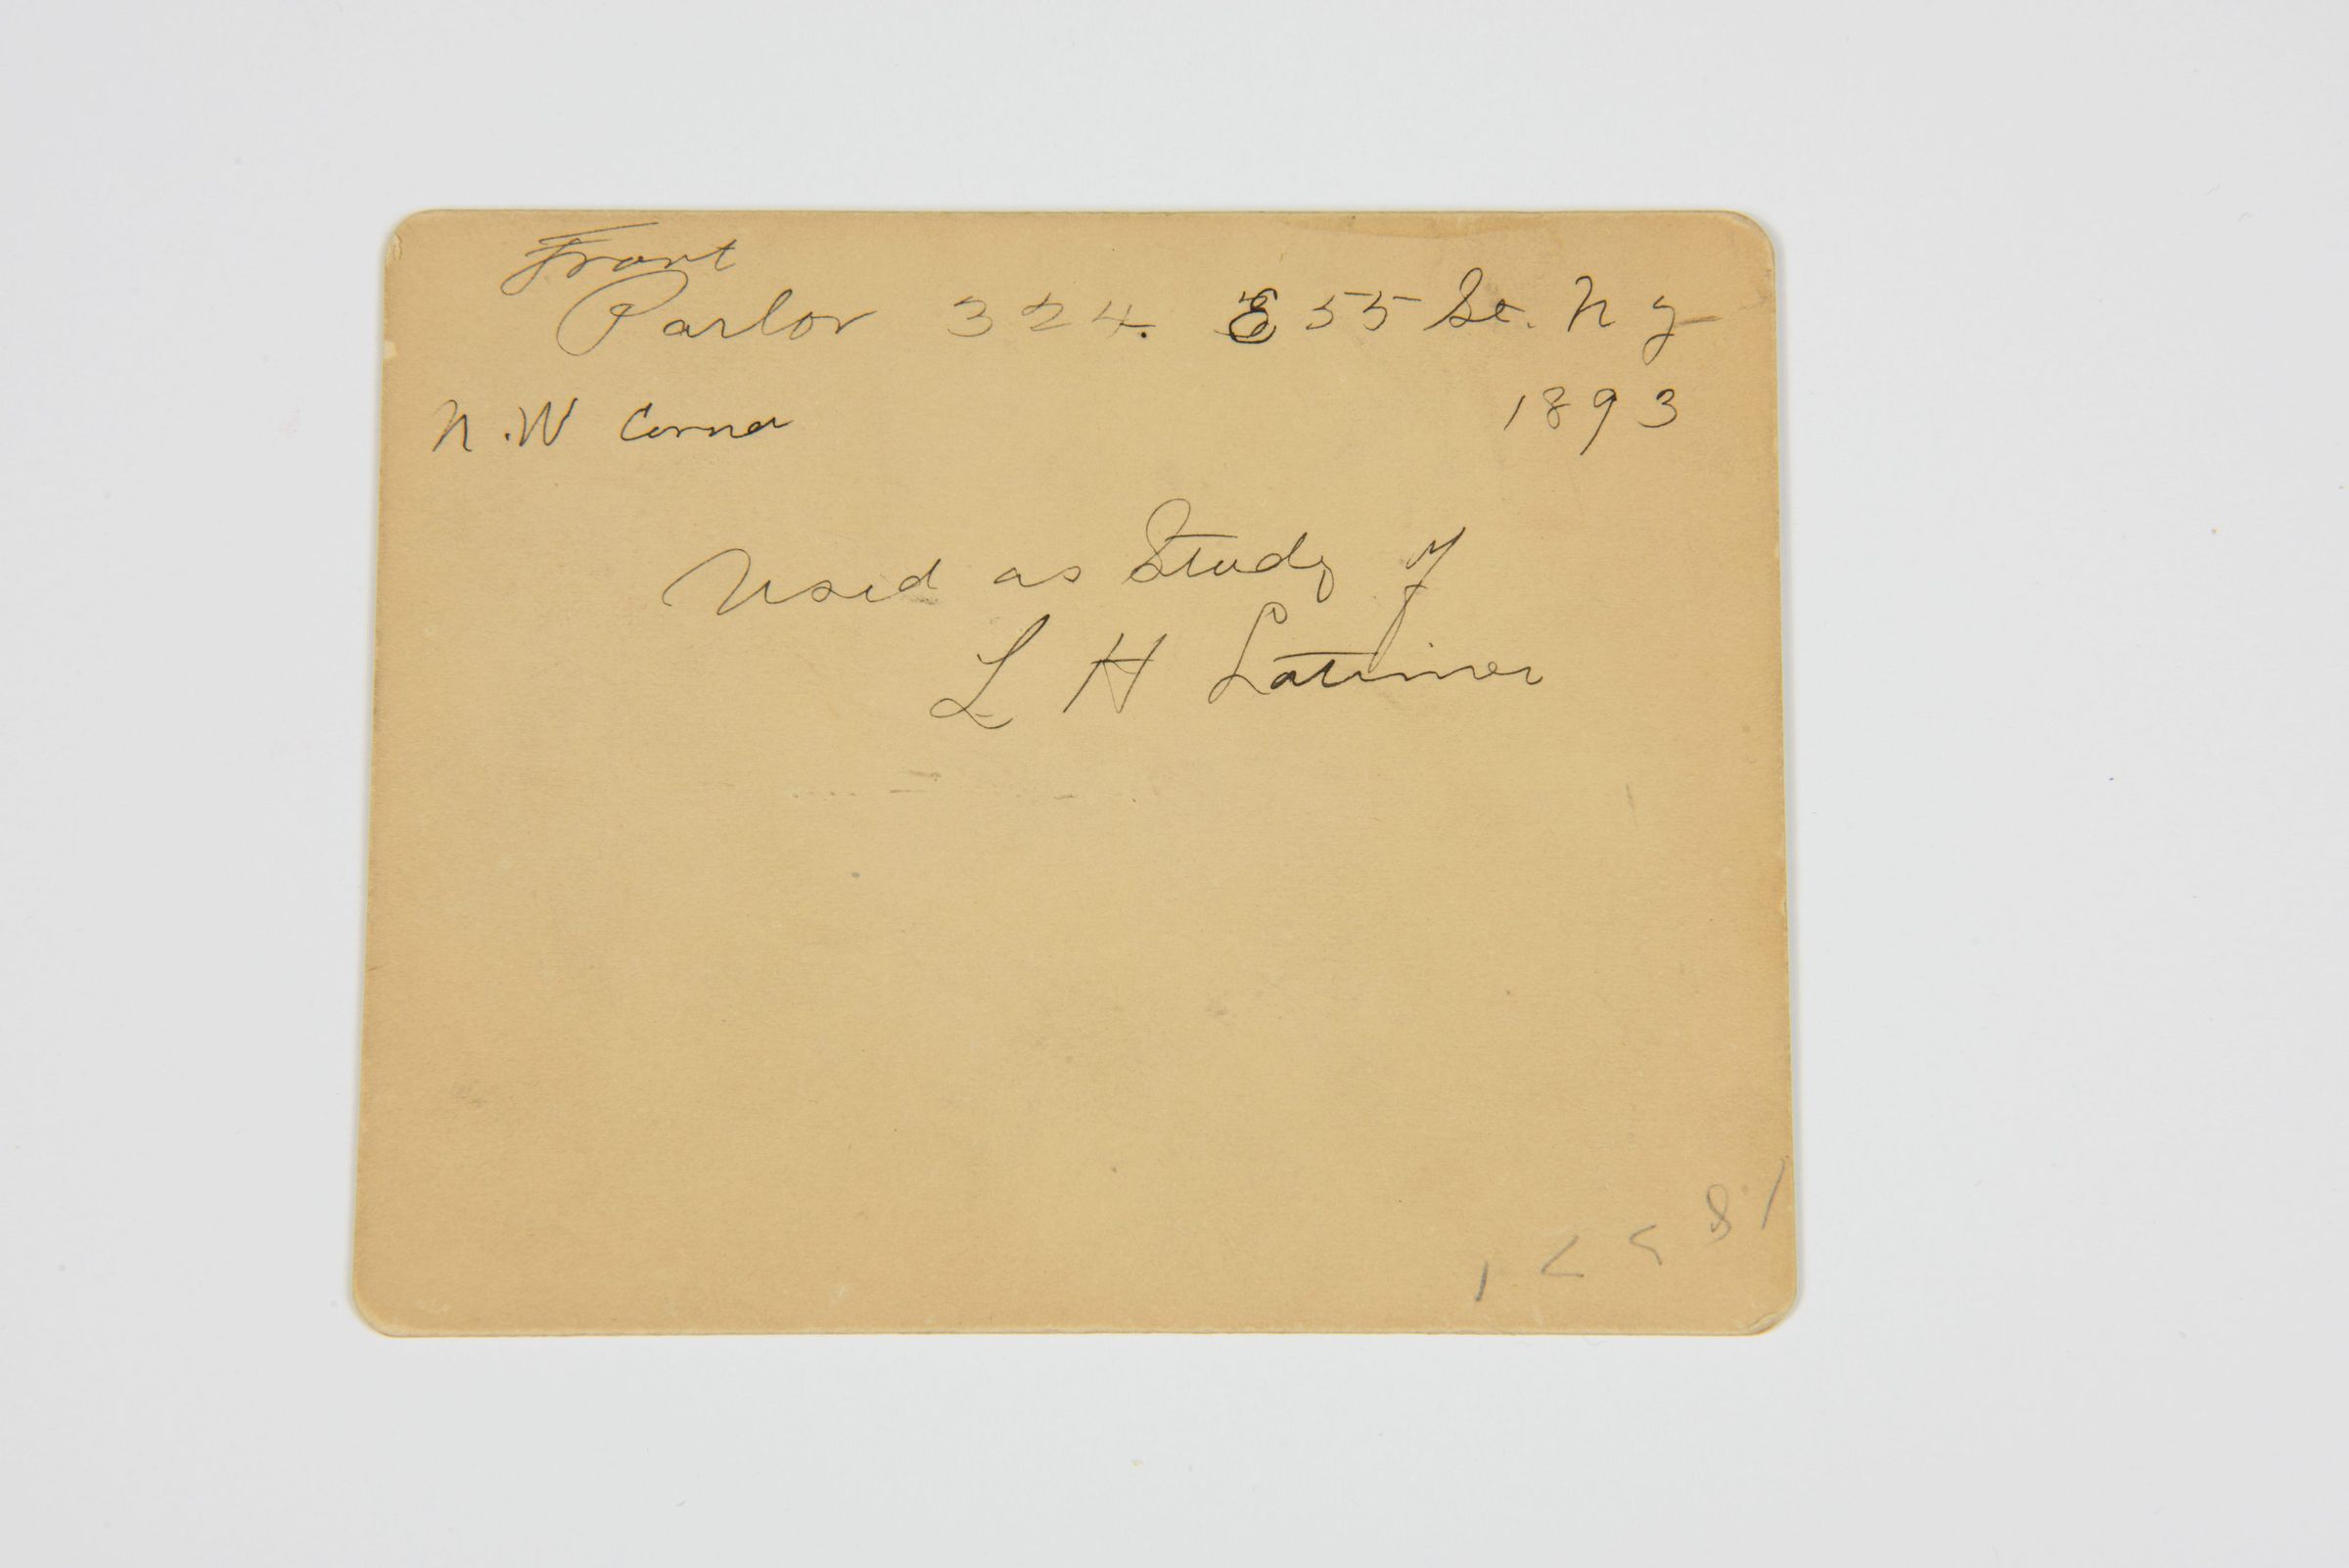 Front
Parlor 324. E 55 St. N Y
N.W Corner 1893
Used as Study of
L H Latimer